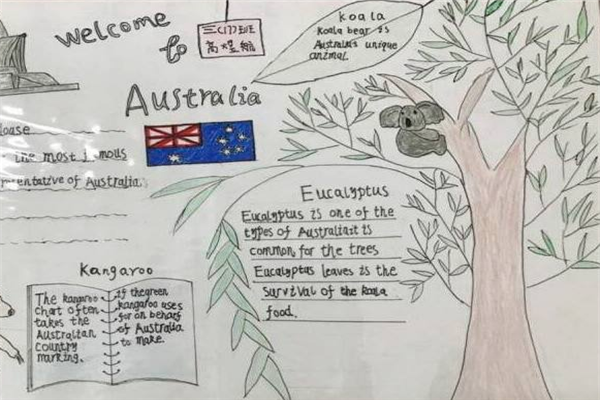 Welcome
to
三(1)班
Australia
koala
koala bear is
Australia's unique
animal.
the most
of Australia.
Eucalyptus
Eucalyptus is one of the
types of Australia it is
common for the trees
Eucalyptus leaves is the
survival of the koala
food.
Kangaroo
The kangaroo
chart often
takes the
Australian
country
marking.
if the green
kangaroo uses
for on behalf
of Australia
to make.